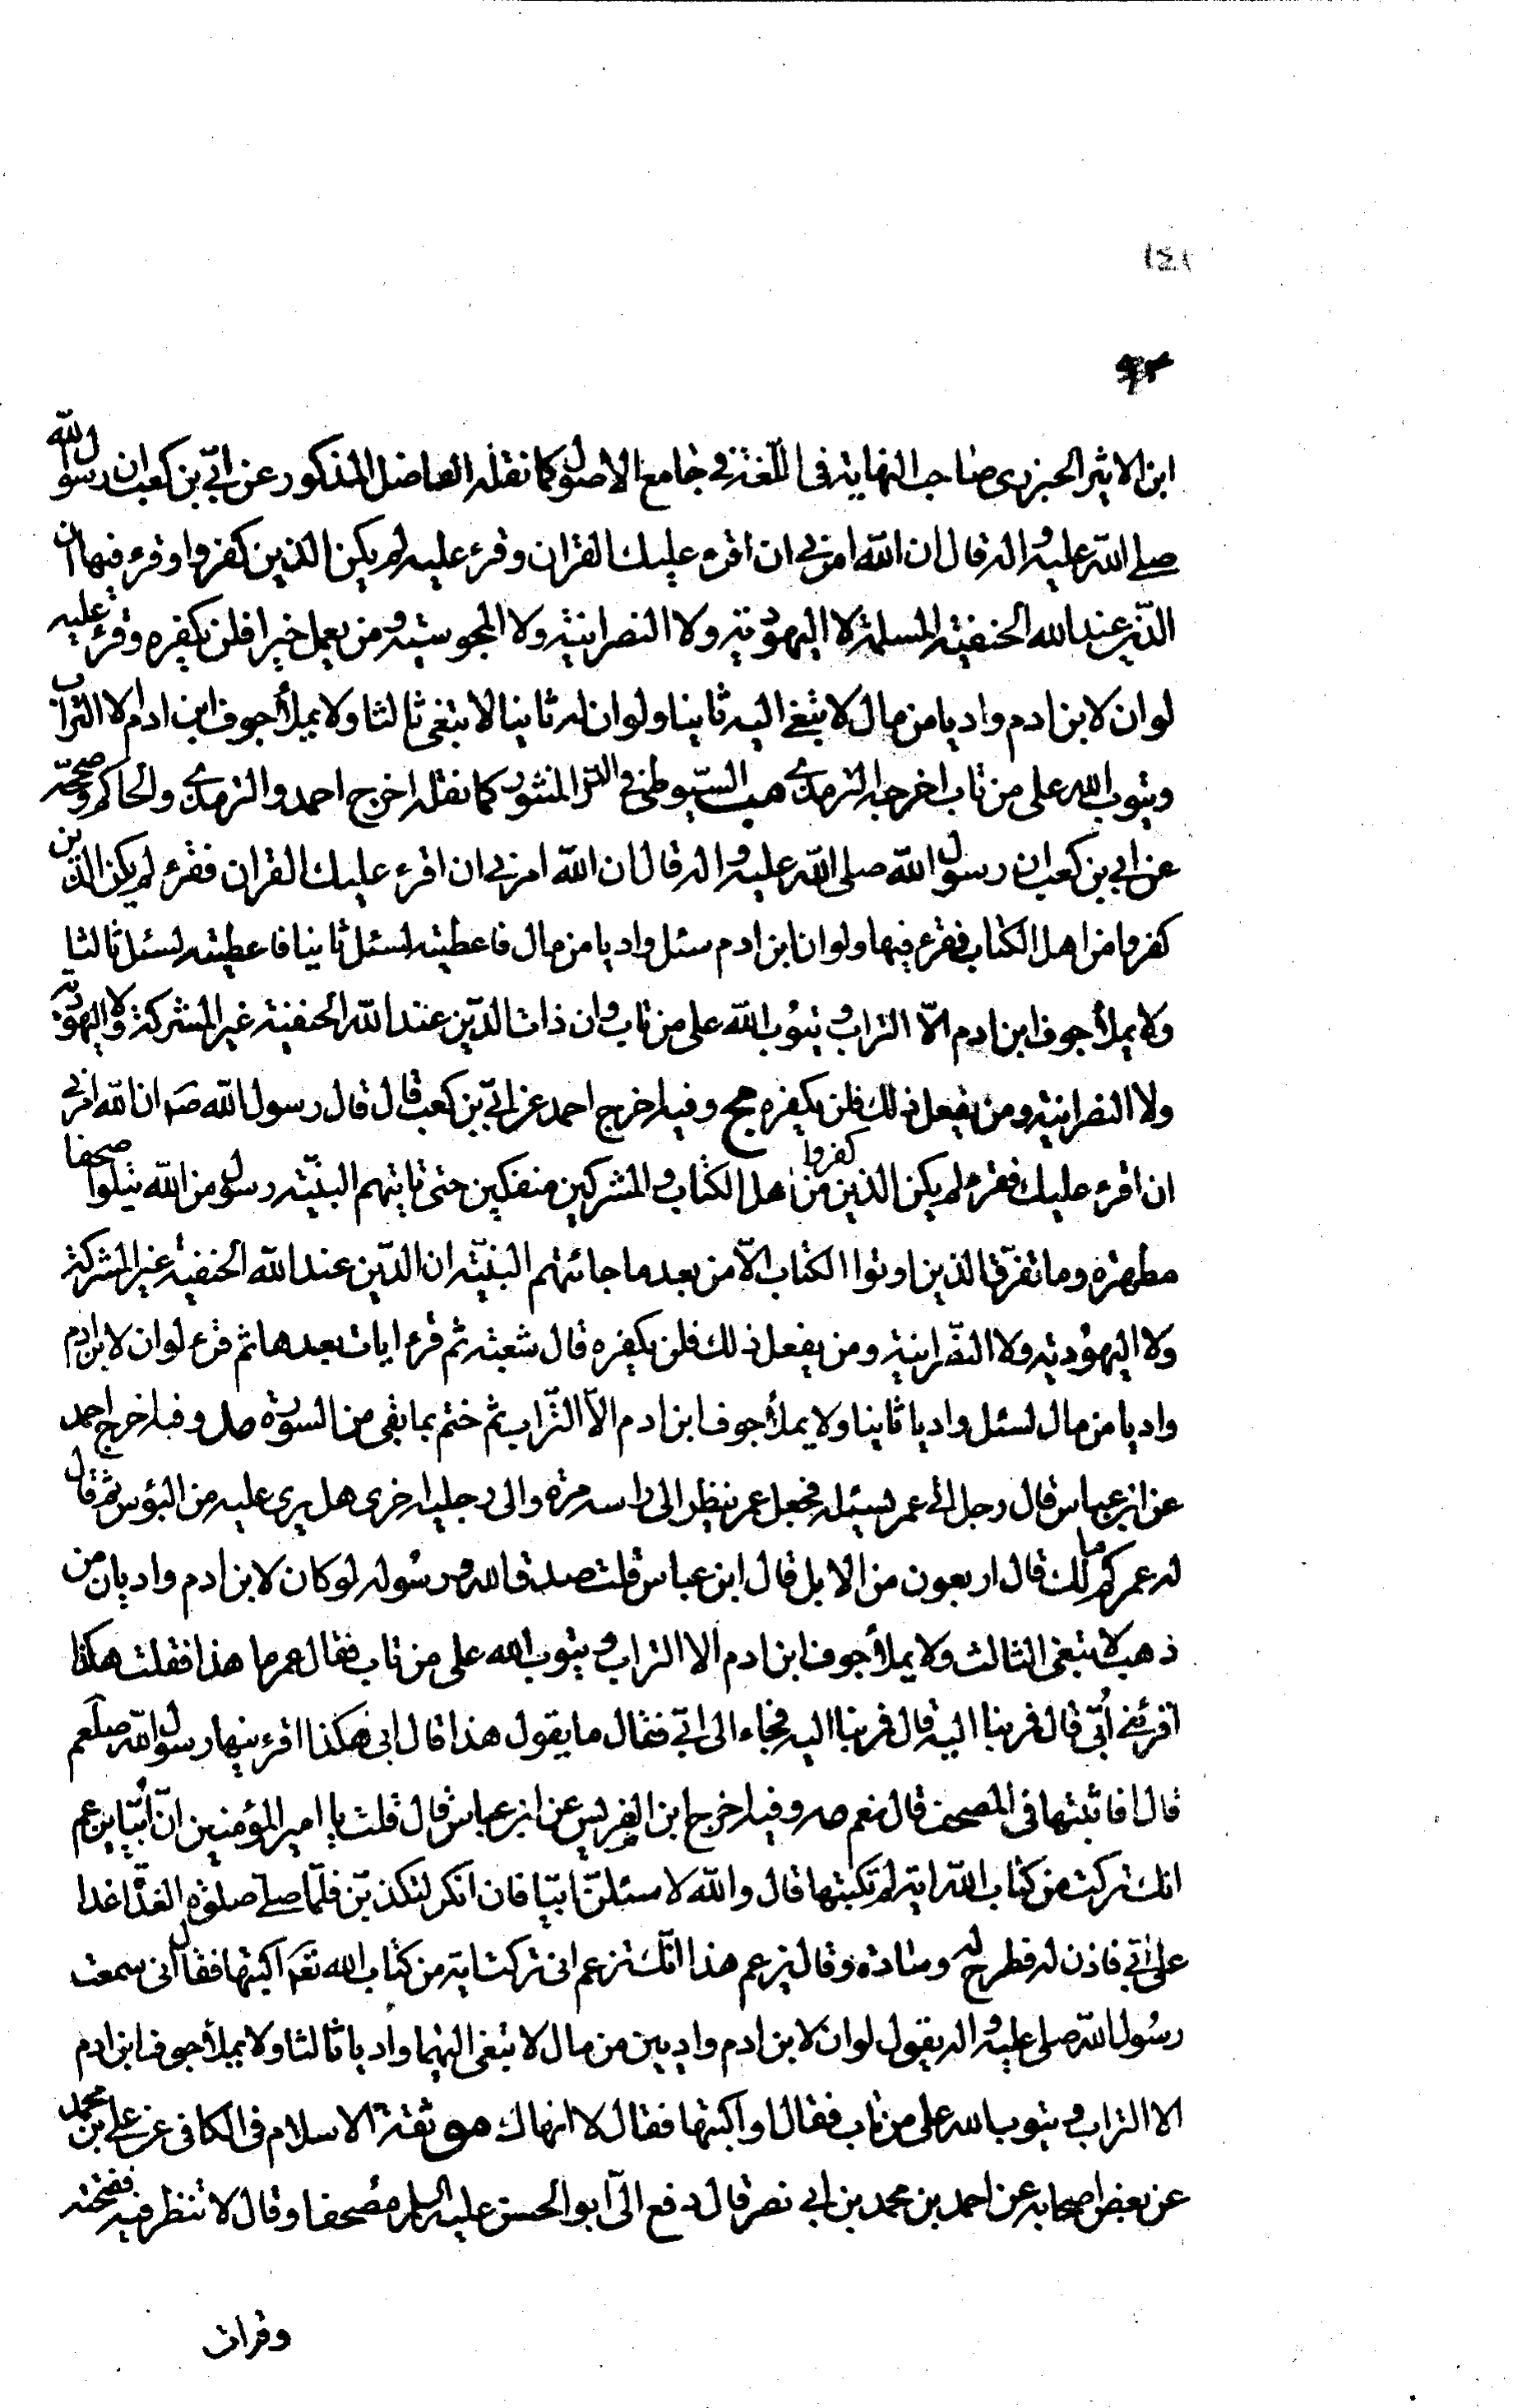 ابن الاثير الجزرى صاحب النهاية فى اللّغة فى جامع الاصول كما نقله الفاضل المذكور عن ابّى بن كعب ان رسول الله
صلى الله عليه واله قال ان الله امرنى ان اقرء عليك القران وقرء عليه لم يكن الذين كفروا وقرء فيها ان
الدّين عند الله الحنفية المسلمة لا اليهودية ولا النصرانية ولا المجوسية ومن يعمل خيرا فلن يكفره وقرء عليه
لو ان لابن ادم واديا من مال لابتغى اليه ثانيا ولو ان له ثانيا لابتغى ثالثا ولا يملأ جوف ابن ادم الا التراب
ويتوب الله على من تاب اخرجه الترمذى السّيوطى فى الدّر المنثور كما نقله اخرج احمد والترمذى والحاكم وصحّحه
عن ابى بن كعب ان رسول الله صلى الله عليه واله قال ان الله امرنى ان اقرء عليك القران فقرء لم يكن الذين
كفروا من اهل الكتاب فقرء فيها ولو ان ابن ادم سئل واديا من مال فاعطيته لسئل ثانيا فاعطيته لسئل ثالثا
ولا يملأ جوف ابن ادم الّا التراب ويتوب الله على من تاب وان ذات الدّين عند الله الحنفية غير المشركة ولا اليهودية
ولا النصرانية ومن يفعل ذلك فلن يكفره وفيه اخرج احمد عن ابّى بن كعب قال قال رسول الله صم ان الله امرنى
ان اقرء عليك فقرء لم يكن الذين كفروا من اهل الكتاب والمشركين منفكين حتى تاتيهم البيّنة رسول من الله يتلوا صحفا
مطهرة وما تفرّق الذين اوتوا الكتاب الّا من بعد ما جائتهم البيّنة ان الدّين عند الله الحنفية غير المشركة
ولا اليهودية ولا النصّرانية ومن يفعل ذلك فلن يكفره قال شعبة ثم قرء ايات بعدها ثم قرء لو ان لابن ادم
واديا من مال لسئل واديا ثانيا ولا يملأ جوف ابن ادم الّا التّراب ثم ختم بما بقى من السورة وفيه اخرج احمد
عن ابن عباس قال رجل الى عمر يسئله فجعل عمر ينظر الى راسه مرة والى رجليه اخرى هل يرى عليه من البؤس ثم قال
له عمر كم مالك قال اربعون من الابل قال ابن عباس قلت صدق الله ورسوله لو كان لابن ادم واديان من
ذهب لابتغى الثالث ولا يملأ جوف ابن ادم الا التراب ويتوب الله على من تاب فقال عمر ما هذا فقلت هكذا
اقرئنى اُبّى قال فمر بنا اليه قال فمر بنا اليه فجاء الى ابّى فقال ما يقول هذا قال ابى هكذا اقرءنيها رسول الله صلعم
قال افاثبتها فى المصحف قال نعم وفيه اخرج ابن الضريس عن ابن عباس قال قلت يا امير المؤمنين انّ اُبيّا يزعم
انك تركت من كتاب الله اية لم تكتبها قال والله لاسئلنّ ابيّا فان انكر لتكذبنّ فلمّا صلى صلوة الغداة غدا
على ابّى فاذن له فطرح له وسادة وقال يزعم هذا انّك تزعم انى تركت اية من كتاب الله لم اكتبها فقال انى سمعت
رسول الله صلى عليه واله يقول لو ان لابن ادم واديين من مال لابتغى اليهما واديا ثالثا ولا يملأ جوف ابن ادم
الا التراب ويتوب الله على من تاب فقال او اكتبها فقال لا انهاك ثقة الاسلام فى الكافى عن على بن محمد
عن بعض اصحابه عن احمد بن محمد بن ابى نصر قال دفع الىّ ابو الحسن عليه السلام مصحفا وقال لا تنظر فيه ففتحته
وقرات